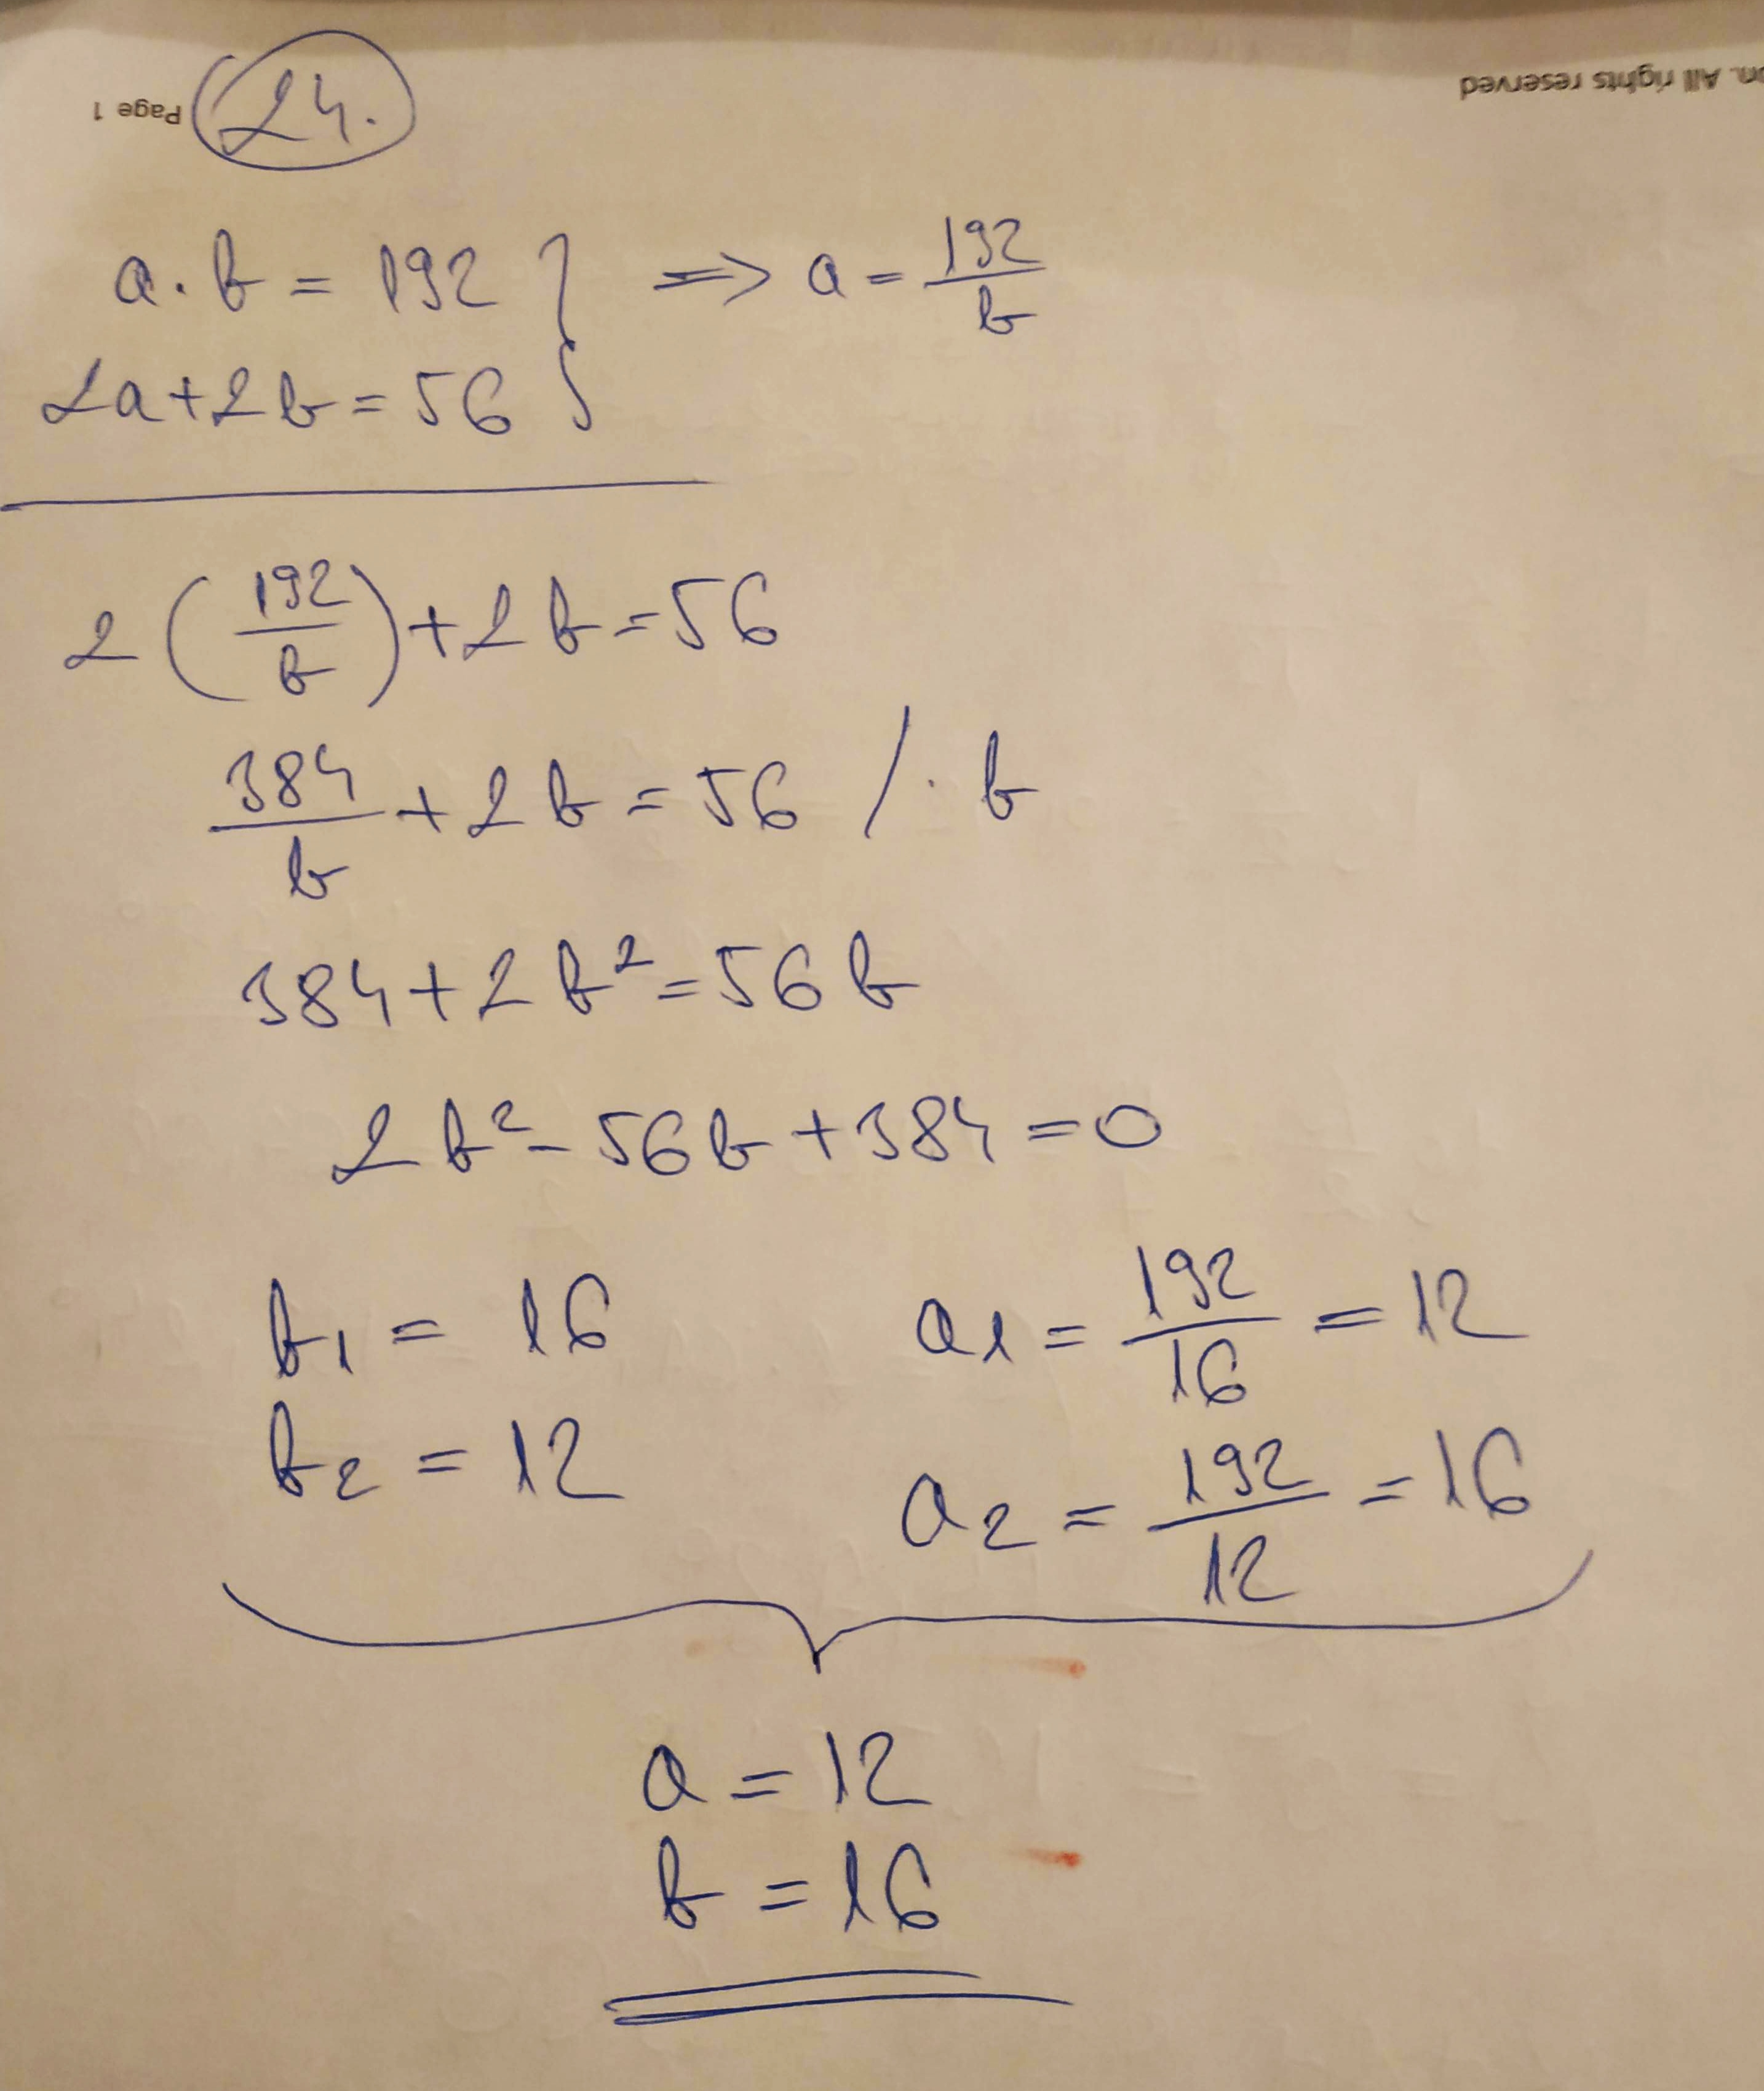 on. All rights reserved
Page 1
24.
a · b = 192 } => a = 192/b
2a + 2b = 56
2(192/b) + 2b = 56
384/b + 2b = 56 / · b
384 + 2b² = 56b
2b² - 56b + 384 = 0
b₁ = 16 a₁ = 192/16 = 12
b₂ = 12 a₂ = 192/12 = 16
a = 12
b = 16